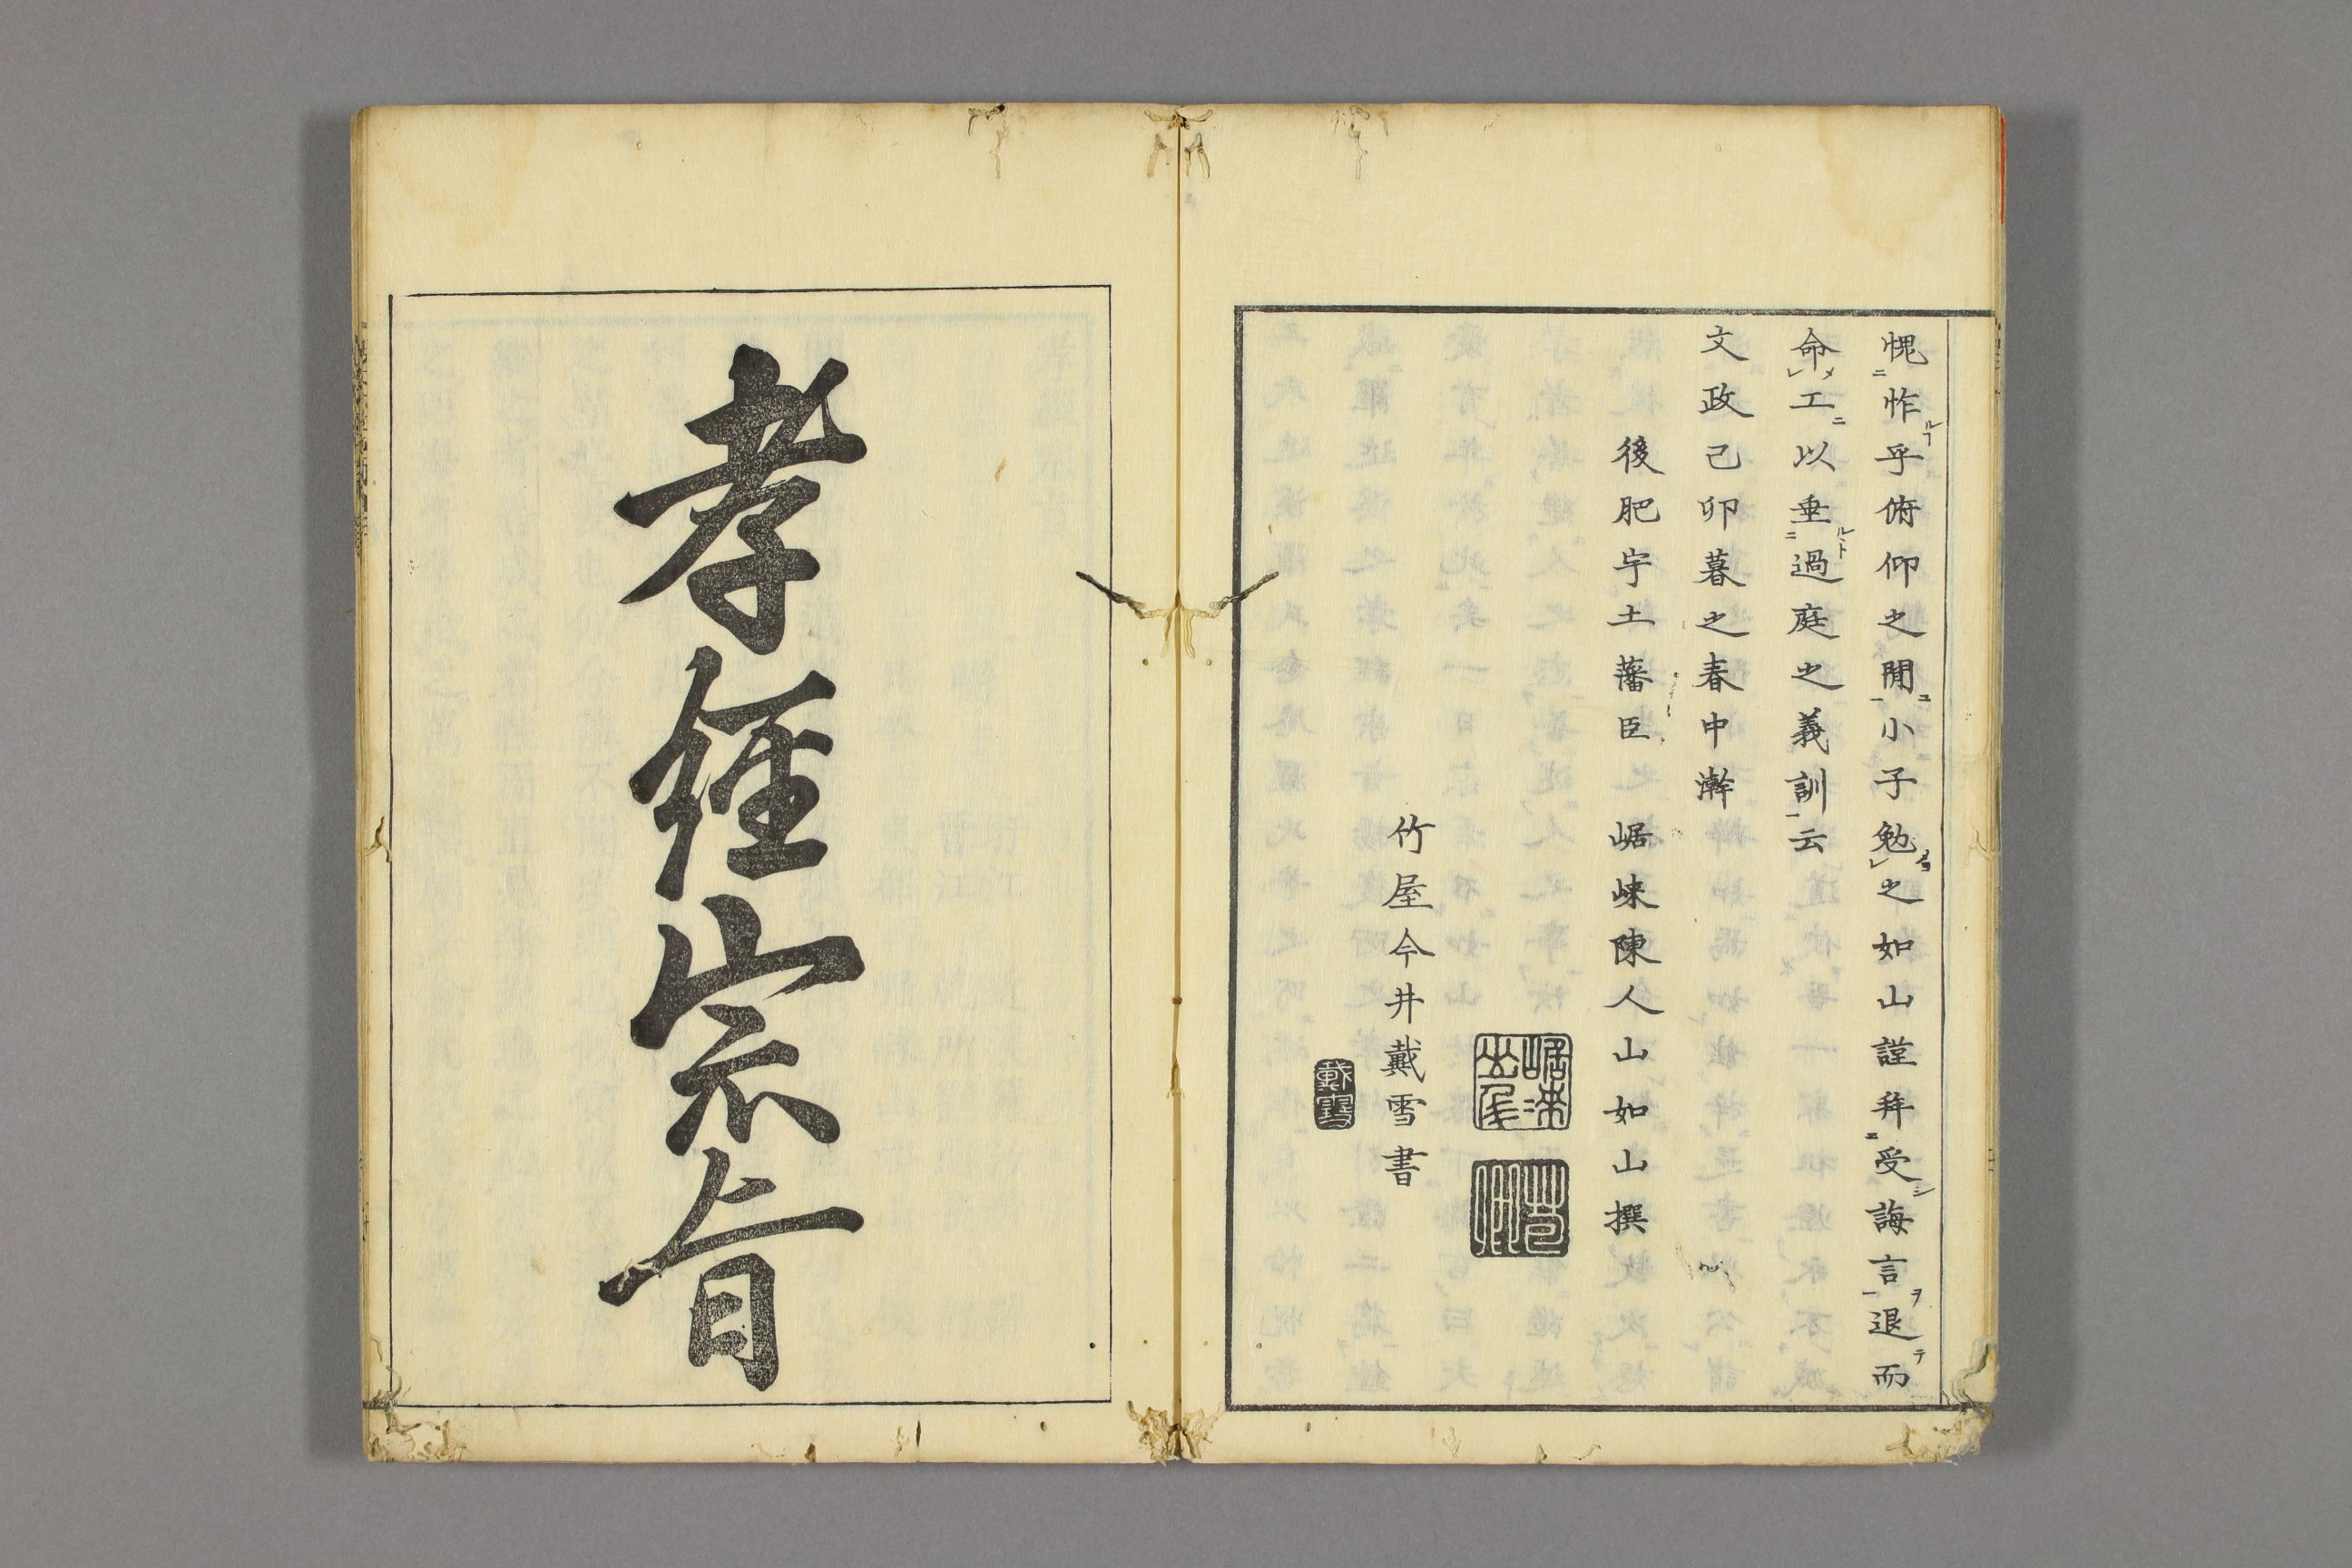 愧怍乎俯仰之閒小子勉之如山謹拜受誨言退而
命工以垂過庭之義訓云
文政己卯暮之春中澣
後肥宇土藩臣 崌崍陳人山如山撰
竹屋今井戴雪書
戴雪
孝經宗旨